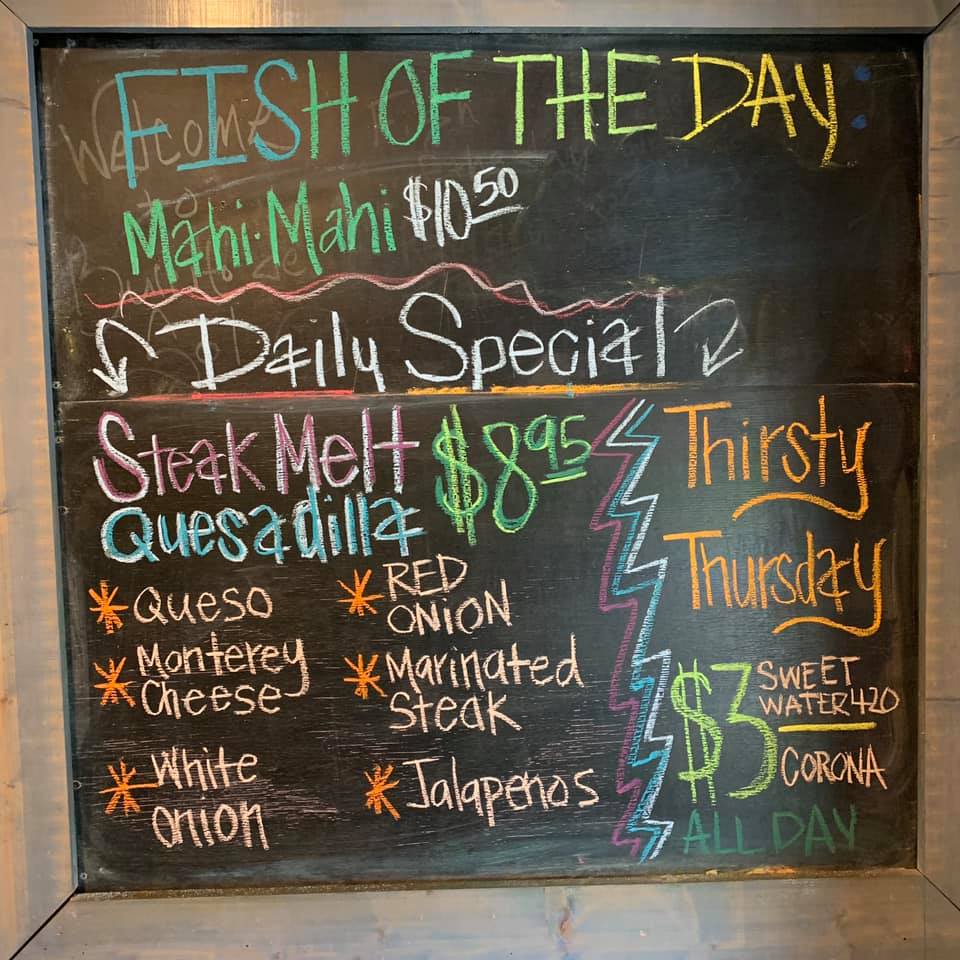 FISH OF THE DAY:
Mahi-Mahi $10.50
Daily Special
Steak Melt $8.95
Quesadilla
* Queso
* Monterey
Cheese
* White
onion
* RED
ONION
* Marinated
Steak
* Jalapenos
Thirsty
Thursday
$3 SWEET
WATER 420
CORONA
ALL DAY
Welcome
to